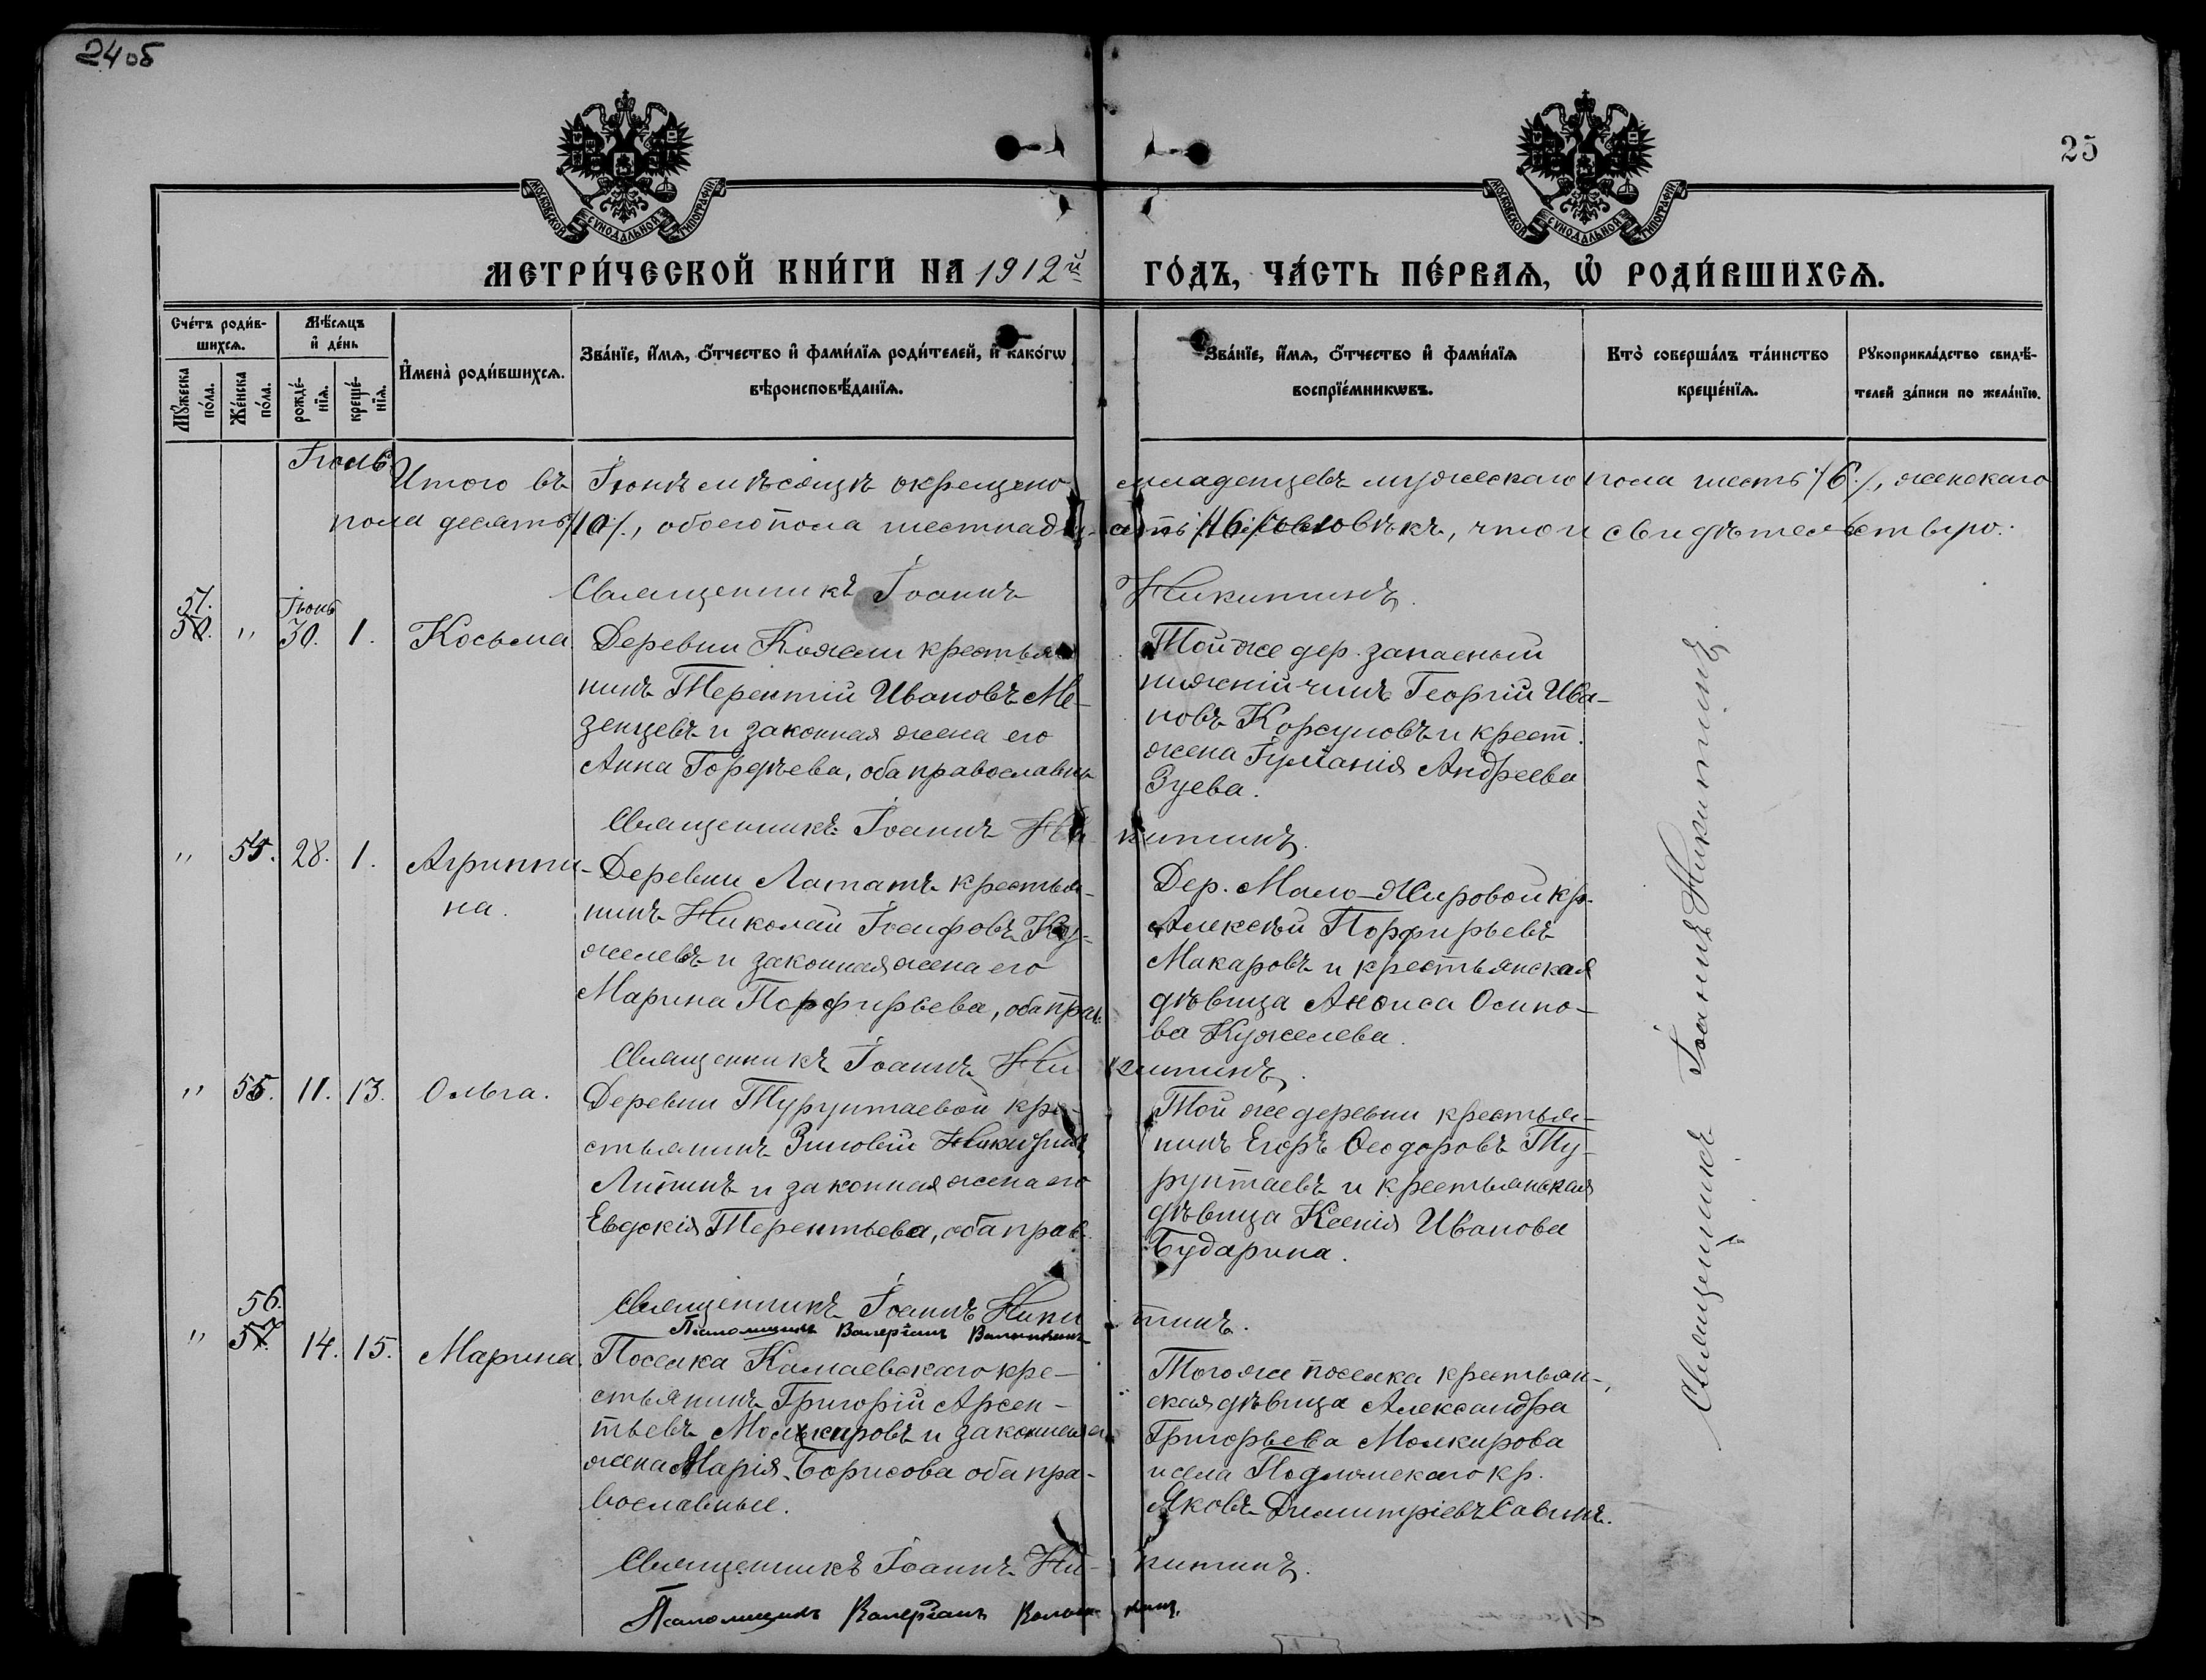 24об
25
МОСКОВСКОЙ СѴНОДАЛЬНОЙ ТИПОГРАФІИ
МОСКОВСКОЙ СѴНОДАЛЬНОЙ ТИПОГРАФІИ
МЕТРИ́ЧЕСКОЙ КНИ́ГИ НА 1912й ГО́ДЪ, ЧА́СТЬ ПЕ́РВАѦ, Ѡ РОДИ́ВШИХСѦ.
Сче́тъ роди́в-
шихсѧ.
Мѣ́сѧцъ
и҆ де́нь
И҆мена̀ роди́вшихсѧ.
Зва́нїе, и҆́мѧ, ѻ҆́тчество и҆ фами́лїѧ роди́телей, и҆ како́гѡ
вѣроисповѣ́данїѧ.
Зва́нїе, и҆́мѧ, ѻ҆́тчество и҆ фами́лїѧ
воспрїе́мникѡвъ.
Кто̀ соверша́лъ та́инство
креще́нїѧ.
Рꙋкоприкла́дство свидѣ́-
телей за́писи по жела́нїю.
Мꙋ́жеска
по́ла.
Же́нска
по́ла.
рожде́-
нїѧ.
креще́-
нїѧ.
Іюль
Итого въ Іюнѣ мѣсяцѣ окрещено младенцевъ мужескаго пола шесть /6/, женскаго
пола десять /10/, обоего пола шестнадцать /16/ человѣкъ, что и свидѣтельствую.
Священникъ Іоаннъ Никитинъ.
51.
50. " Іюнь 30. 1. Косьма
Деревни Кожели крестья-
нинъ Терентій Ивановъ Ме-
зенцевъ и законная жена его
Анна Гордѣева, оба православн.
Той же дер. запасный
нижній чинъ Георгій Ива-
новъ Корсуновъ и крест.
жена Гуліанія Андреева
Зуева.
Священникъ Іоаннъ Никитинъ.
" 54. 28. 1. Агриппи-
на.
Деревни Лататъ крестья-
нинъ Николай Іосифовъ Ку-
желевъ и законная жена его
Марина Порфирьева, оба прав.
Дер. Мало-Жировой кр.
Алексѣй Порфирьевъ
Макаровъ и крестьянская
дѣвица Анѳиса Осипо-
ва Кужелева.
Священникъ Іоаннъ Никитинъ.
" 55. 11. 13. Ольга.
Деревни Турунтаевой кре-
стьянинъ Зиновій
Литинъ и законная жена его
Евдокія Терентьева, оба прав.
Той же деревни крестья-
нинъ Егоръ Ѳеодоровъ Ту-
рунтаевъ и крестьянская
дѣвица Ксенія Иванова
Бударина.
Священникъ Іоаннъ Никитинъ.
Псаломщикъ Валеріанъ
56.
57. " 14. 15. Марина.
Поселка Камаевскаго кре-
стьянинъ Григорій Арсен-
тьевъ Молькировъ и законная
жена Марія Борисова оба пра-
вославные.
Того же поселка крестьян-
ская дѣвица Александра
Григорьева Молкирова
и села Подломскаго кр.
Яковъ Димитріевъ Савинъ.
Священникъ Іоаннъ Никитинъ.
Псаломщикъ Валеріанъ
Священникъ Іоаннъ Никитинъ.